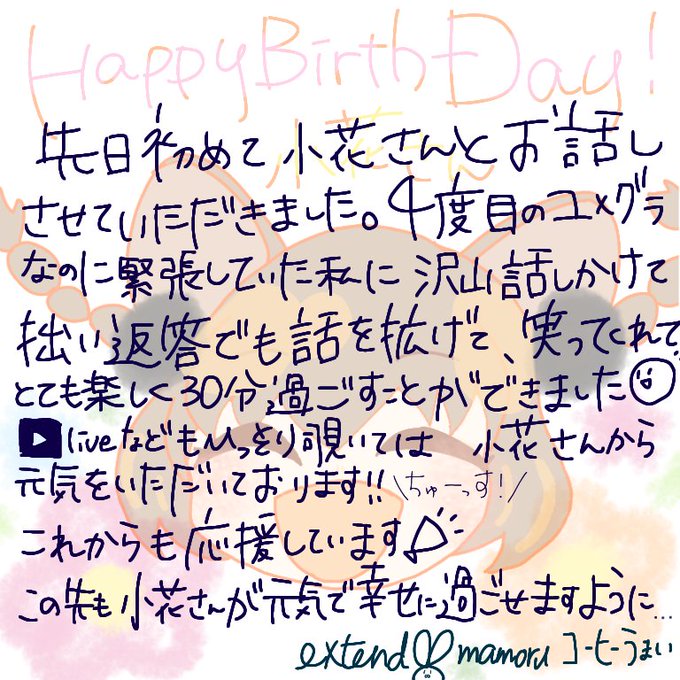 Happy Birth Day!
小花さん
先日初めて小花さんとお話し
させていただきました。4度目のユメグラ
なのに緊張していた私に沢山話しかけて
拙い返答でも話を拡げて、笑ってくれて
とても楽しく30分過ごすことができました
liveなどもひっそり覗いては 小花さんから
元気をいただいております!! \ちゅーっす!/
これからも応援しています
この先も小花さんが元気で幸せに過ごせますように...
extend mamoru コーヒーうまい